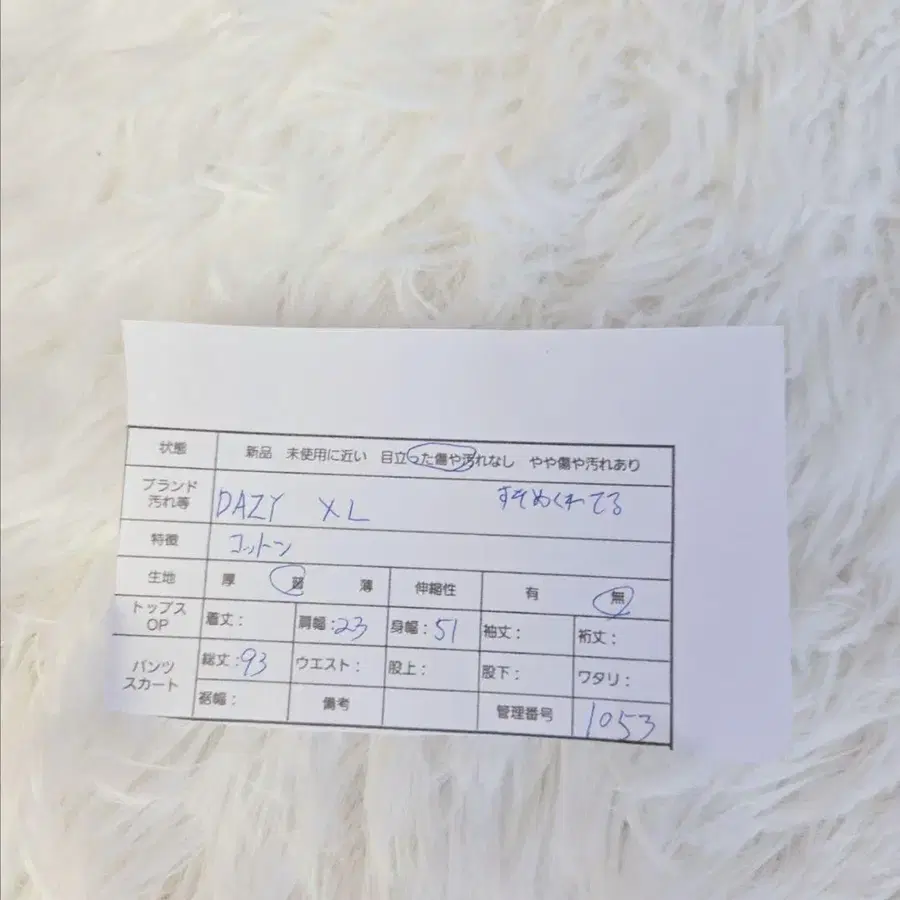 状態 新品 未使用に近い 目立った傷や汚れなし やや傷や汚れあり
ブランド 汚れ等 DAZY XL すそめくれてる
特徴 コットン
生地 厚 普 薄 伸縮性 有 無
トップス OP 着丈: 肩幅:23 身幅:51 袖丈: 裄丈:
パンツ スカート 総丈:93 ウエスト: 股上: 股下: ワタリ:
裾幅: 備考 管理番号 1053